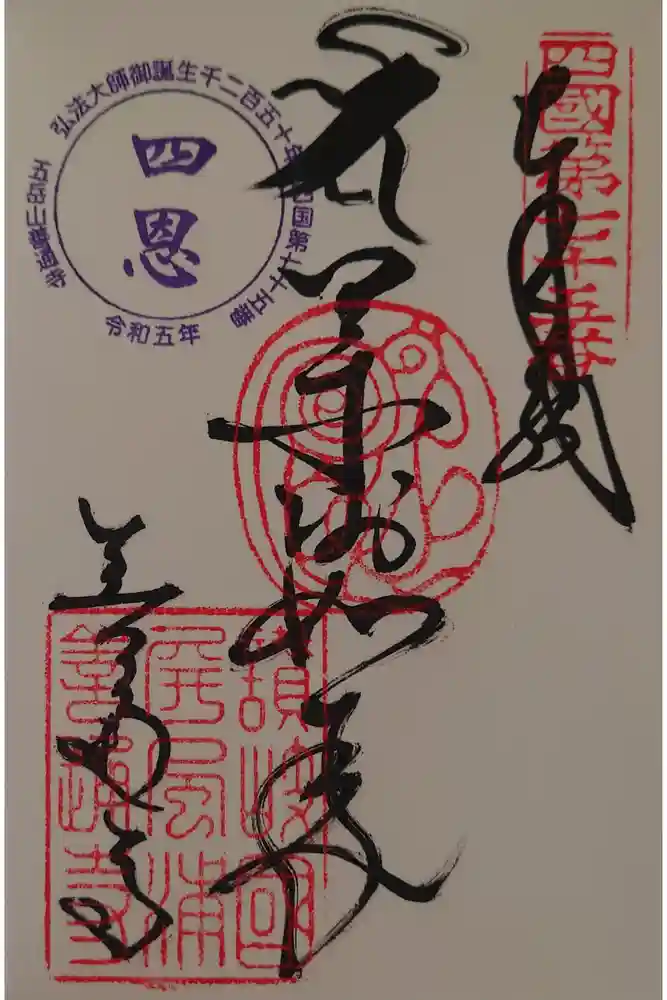 四國第七十五番
奉納経
薬師如来
善通寺
讃岐國
屏風浦
善通寺
弘法大師御誕生千二百五十年
四国第七十五番
五岳山善通寺
令和五年
四恩